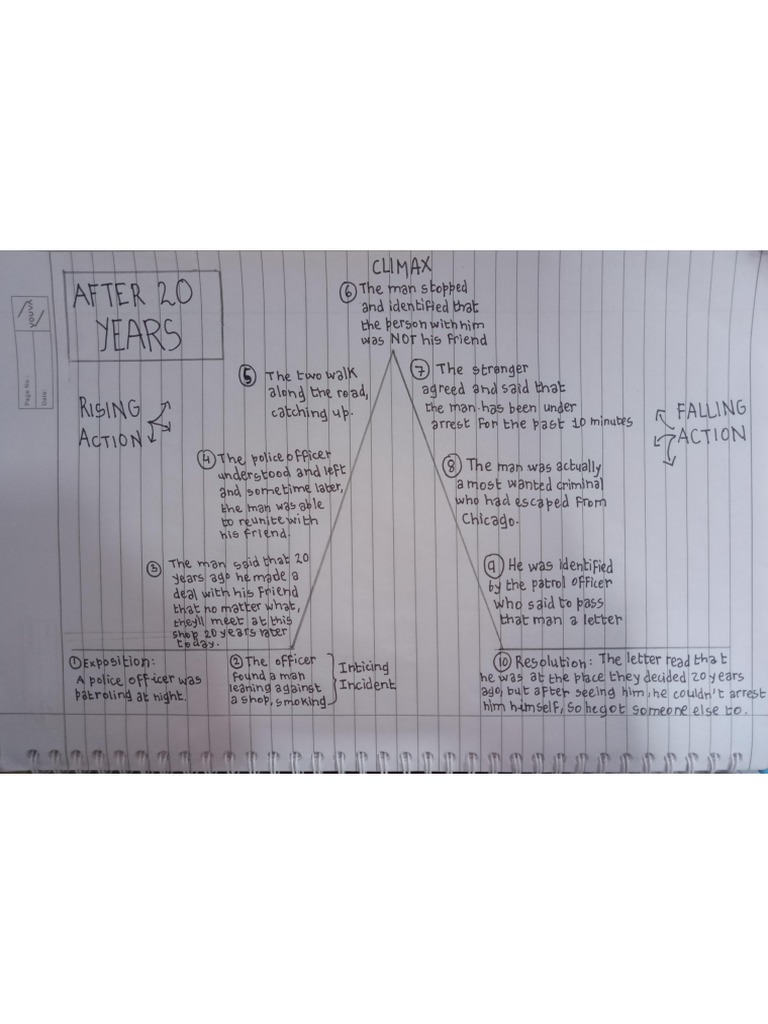 youva
Page No.:
Date:
AFTER 20
YEARS
RISING
ACTION
FALLING
ACTION
① Exposition:
A police officer was
patroling at night.
② The officer
found a man
leaning against
a shop, smoking
Inticing
Incident
③ The man said that 20
years ago he made a
deal with his friend
that no matter what,
they'll meet at this
shop 20 years rater
today.
④ The police officer
understood and left
and sometime later,
the man was able
to reunite with
his friend.
⑤ The two walk
along the road,
catching up.
CLIMAX
⑥ The man stopped
and identified that
the person with him
was NOT his friend
⑦ The stranger
agreed and said that
the man has been under
arrest for the past 10 minutes
⑧ The man was actually
a most wanted criminal
who had escaped from
Chicago.
⑨ He was identified
by the patrol officer
who said to pass
that man a letter
⑩ Resolution: The letter read that
he was at the place they decided 20 years
ago, but after seeing him, he couldn't arrest
him himself, so he got someone else to.